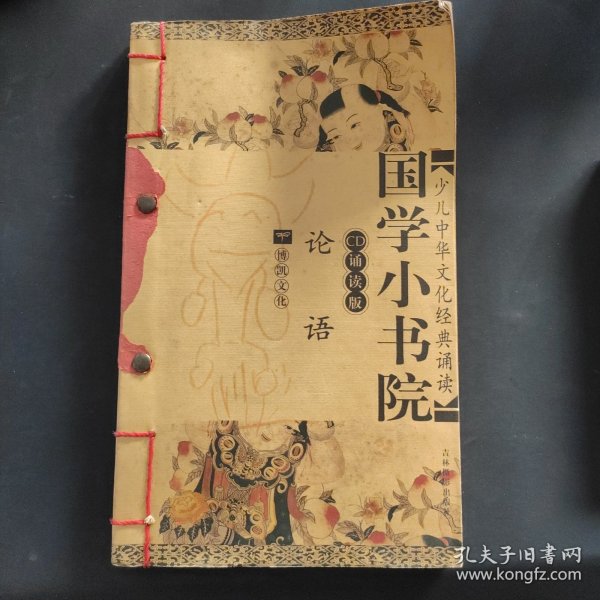 少儿中华文化经典诵读
国学小书院
CD诵读版
论语
博凯文化
孔夫子旧书网
www.kongfz.com